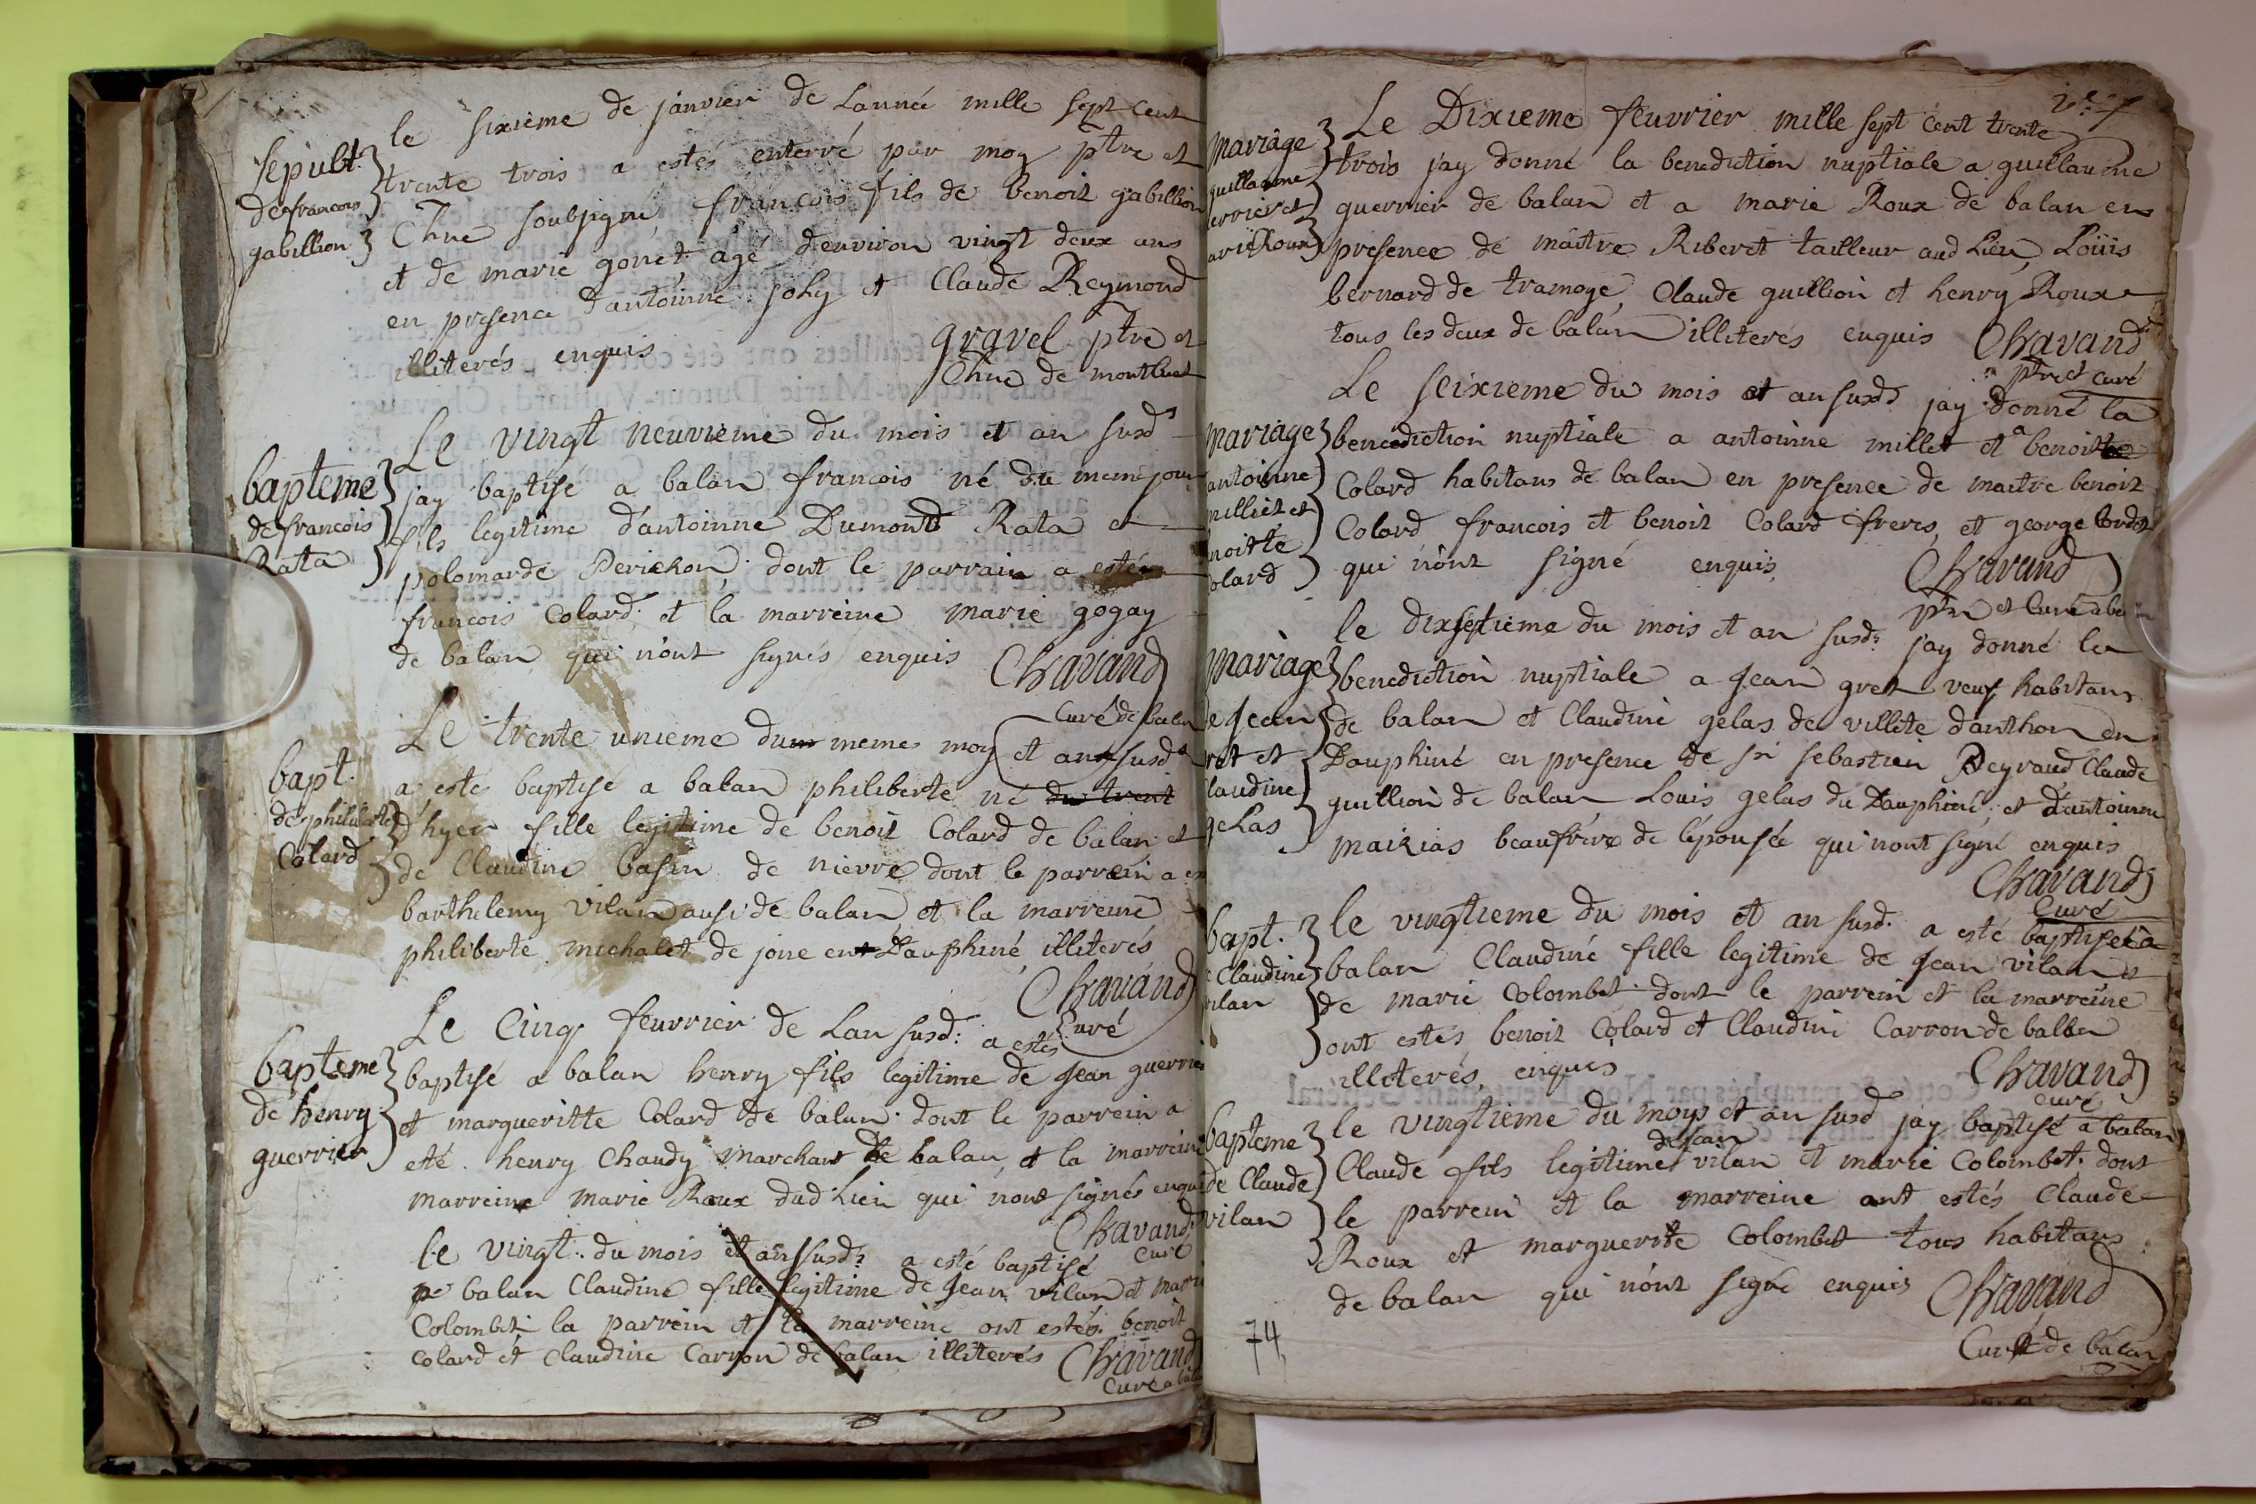 le sixieme de janvier de Lannée mille sept cent
Sepult.
de francois
gabillion
trente trois a estés enterré par moy ptre et
Chne soubsigné, francois fils de benoit gabillion
et de marie gonet agé denviron vingt deux ans
en presence d'antoinne joly et Claude Reymond
illiterés enquis
gravel ptre et
Chne de montluel
Le vingt neuvieme du mois et an susd
bapteme
de francois
Rata
jay baptisé a balan francois né du meme jour
fils legitime d'antoinne Dumont Rata et
polomarde Perichon dont le parrain a esté
francois Colard et la marreine marie gogay
de balan qui n'ont signés enquis
Chavand
Curé de balan
Le trente unieme du meme moy et an susd
bapt.
de philiberte
Colard
a estes baptisé a balan philiberte né du trent
d'hyer fille legitime de benoit Colard de balan et
de Claudine basin de nievre dont le parrein a
barthelemy vilan ausi de balan et la marreine
philiberte michalet de jone en Dauphiné, illiterés
Chavand
Curé
Le Cinq feuvrier de Lan susd: a estés
bapteme
de henry
guerrier
baptisé a balan henry fils legitime de jean guerrier
et margueritte Colard de balan dont le parrein a
eté henry Chaudy marchant de balan, et la marreine
marreine marie Roux dud Lieu qui n'ont signés enquis
Chavand
Curé
Le vingt du mois et an susd: a esté baptisé
a balan Claudine fille legitime de jean vilan et marie
Colombet la parrein et la marreine ont estés benoit
Colard et Claudine Carron de balan illiterés
Chavand
Curé a balan
Le Dixieme feuvrier mille sept cent trente
mariage
guillaume
errier et
arie Roux
trois jay donné la benediction nuptiale a guillaume
guerrier de balan et a marie Roux de balan en
presence de maitre Riberet tailleur aud Lieu, Loüis
bernard de tramoye, Claude guillion et henry Roux
tous les deux de balan illiterés enquis
Chavand
ptre et curé
Le seixieme du mois et an susd: jay donné la
mariage
antoinne
milliet et
noitte
olard
benediction nuptiale a antoinne millet et a benoitte
Colard habitans de balan en presence de maitre benoit
Colard francois et benoit Colard freres, et george bordet
qui n'ont signé enquis
Chavand
ptre et Curé a
le dixseptieme du mois et an susd: jay donné la
mariage
de jean
ret et
laudine
gelas
benediction nuptiale a jean gret veuf habitans
de balan et Claudine gelas de villete d'anthon en
Dauphiné en presence de sr sebastien Peyraud Claude
guillion de balan Louis gelas du Dauphiné, et d'antoinne
maizias beaufrere de l'épousée qui n'ont signé enquis
Chavand
Curé
le vingtieme du mois et an susd. a esté baptisée a
bapt.
Claudine
vilan
balan Claudine fille legitime de jean vilan et
de marie Colombet dont le parrein et la marreine
ont estés, benoit Colard et Claudine Carron de ballan
illiterés, enquis
Chavand
Curé
le vingtieme du moys et an susd jay baptisé a balan
bapteme
de Claude
vilan
Claude fils legitime de jean vilan et marie Colombet dont
le parrein et la marreine ont estés Claude
Roux et marguerite Colombet tous habitans
de balan qui n'ont signé enquis
Chavand
Curé de balan
74